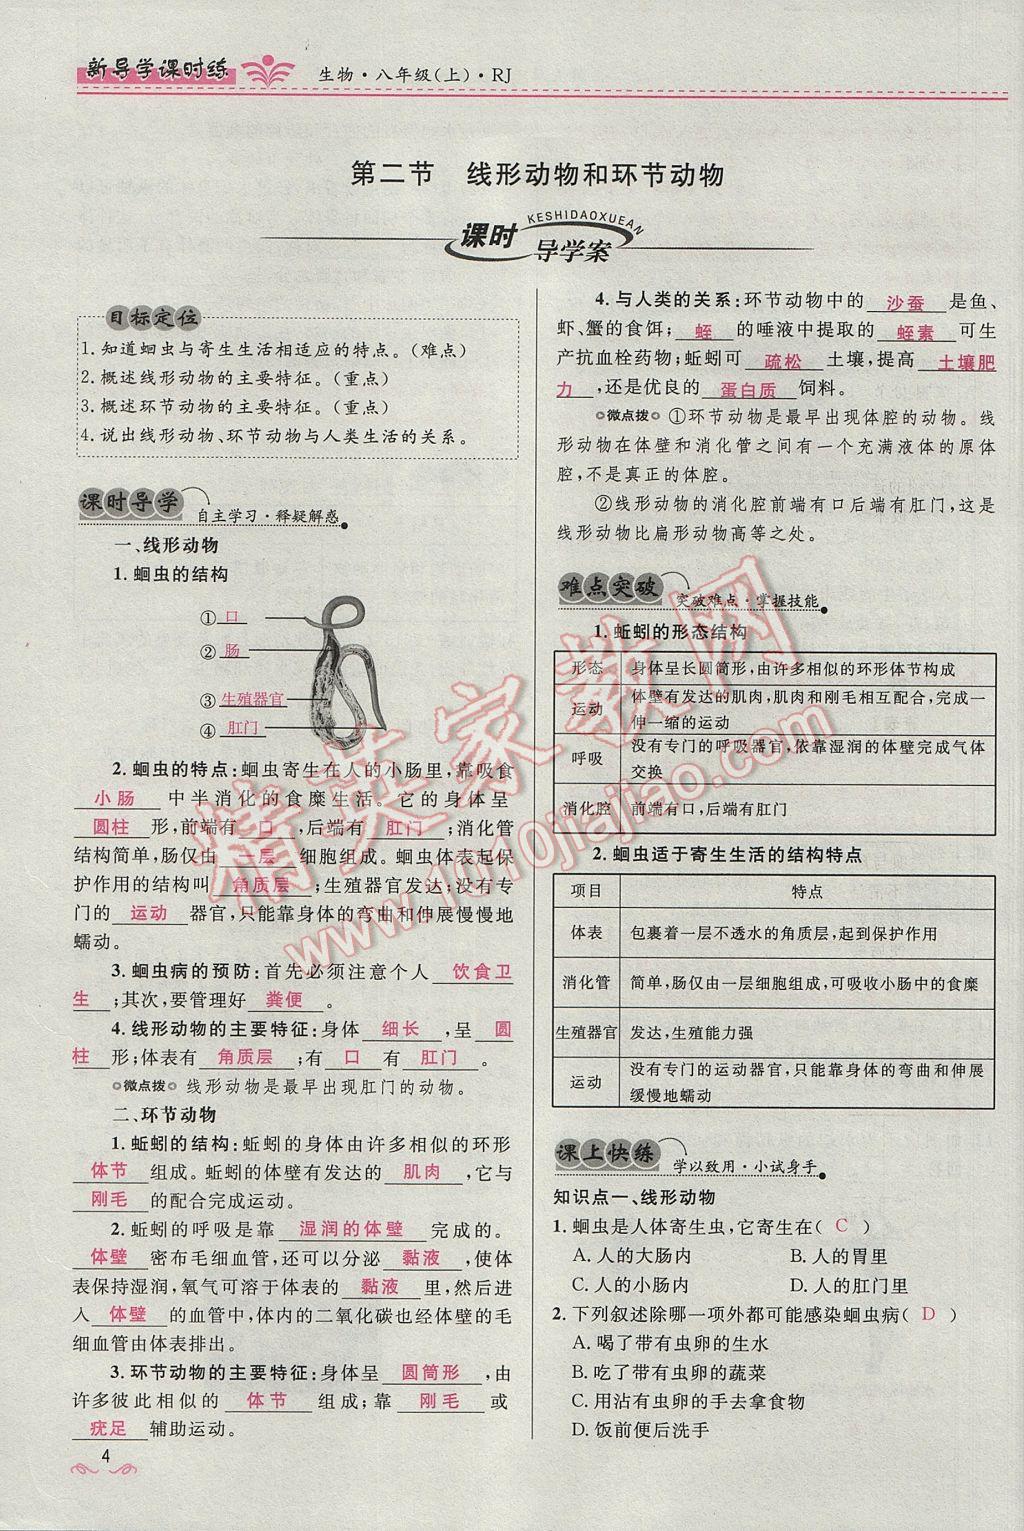 新导学课时练
生物·八年级(上)·RJ
第二节　线形动物和环节动物
课时
KESHIDAOXUEAN
导学案
目标定位
1.知道蛔虫与寄生生活相适应的特点。(难点)
2.概述线形动物的主要特征。(重点)
3.概述环节动物的主要特征。(重点)
4.说出线形动物、环节动物与人类生活的关系。
课时导学
自主学习·释疑解惑
一、线形动物
1.蛔虫的结构
①口
②肠
③生殖器官
④肛门
2.蛔虫的特点:蛔虫寄生在人的小肠里,靠吸食
小肠中半消化的食糜生活。它的身体呈
圆柱形,前端有口,后端有肛门;消化管
结构简单,肠仅由一层细胞组成。蛔虫体表起保
护作用的结构叫角质层;生殖器官发达;没有专
门的运动器官,只能靠身体的弯曲和伸展慢慢地
蠕动。
3.蛔虫病的预防:首先必须注意个人饮食卫
生;其次,要管理好粪便。
4.线形动物的主要特征:身体细长,呈圆
柱形;体表有角质层;有口有肛门。
微点拨 线形动物是最早出现肛门的动物。
二、环节动物
1.蚯蚓的结构:蚯蚓的身体由许多相似的环形
体节组成。蚯蚓的体壁有发达的肌肉,它与
刚毛的配合完成运动。
2.蚯蚓的呼吸是靠湿润的体壁完成的。
体壁密布毛细血管,还可以分泌黏液,使体
表保持湿润,氧气可溶于体表的黏液里,然后进
入体壁的血管中,体内的二氧化碳也经体壁的毛
细血管由体表排出。
3.环节动物的主要特征:身体呈圆筒形,由
许多彼此相似的体节组成;靠刚毛或
疣足辅助运动。
4
4.与人类的关系:环节动物中的沙蚕是鱼、
虾、蟹的食饵;蛭的唾液中提取的蛭素可生
产抗血栓药物;蚯蚓可疏松土壤,提高土壤肥
力,还是优良的蛋白质饲料。
微点拨 ①环节动物是最早出现体腔的动物。线
形动物在体壁和消化管之间有一个充满液体的原体
腔,不是真正的体腔。
②线形动物的消化腔前端有口后端有肛门,这是
线形动物比扁形动物高等之处。
难点突破
突破难点·掌握技能
1.蚯蚓的形态结构
形态 身体呈长圆筒形,由许多相似的环形体节构成
运动 体壁有发达的肌肉,肌肉和刚毛相互配合,完成一
伸一缩的运动
呼吸 没有专门的呼吸器官,依靠湿润的体壁完成气体
交换
消化腔 前端有口,后端有肛门
2.蛔虫适于寄生生活的结构特点
项目 特点
体表 包裹着一层不透水的角质层,起到保护作用
消化管 简单,肠仅由一层细胞组成,可吸收小肠中的食糜
生殖器官 发达,生殖能力强
运动 没有专门的运动器官,只能靠身体的弯曲和伸展
缓慢地蠕动
课上快练
学以致用·小试身手
知识点一、线形动物
1.蛔虫是人体寄生虫,它寄生在( C )
A.人的大肠内　B.人的胃里
C.人的小肠内　D.人的肛门里
2.下列叙述除哪一项外都可能感染蛔虫病( D )
A.喝了带有虫卵的生水
B.吃了带有虫卵的蔬菜
C.用沾有虫卵的手去拿食物
D.饭前便后洗手
精英家教网
www.1010jiajiao.com